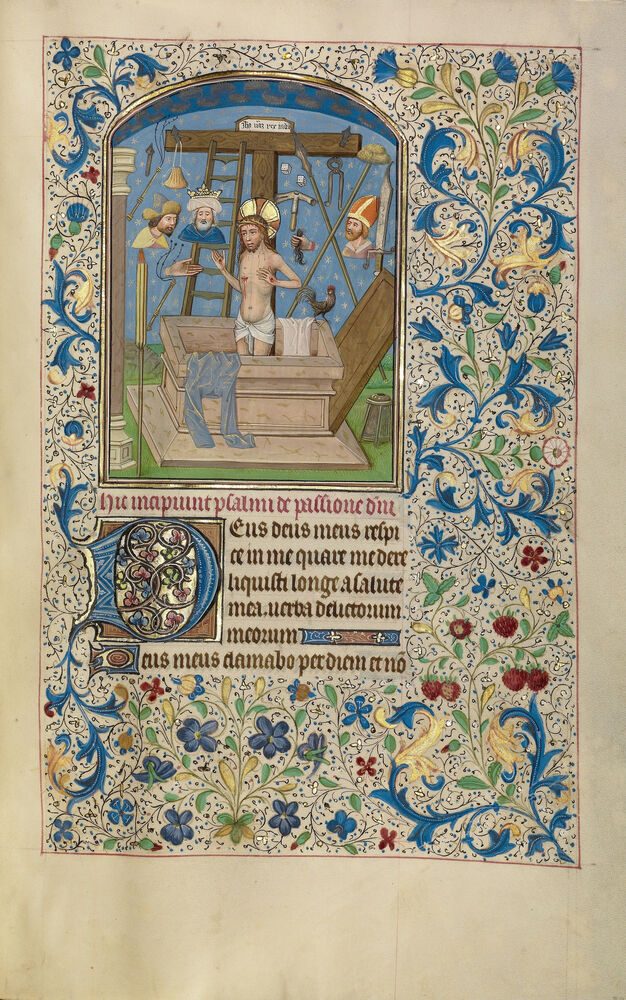 Hic incipiunt psalmi de passione dni
Deus deus meus respi
ce in me quare me dere
liquisti longe a salute
mea. uerba delictorum
meorum
Deus meus clamabo per diem et nō